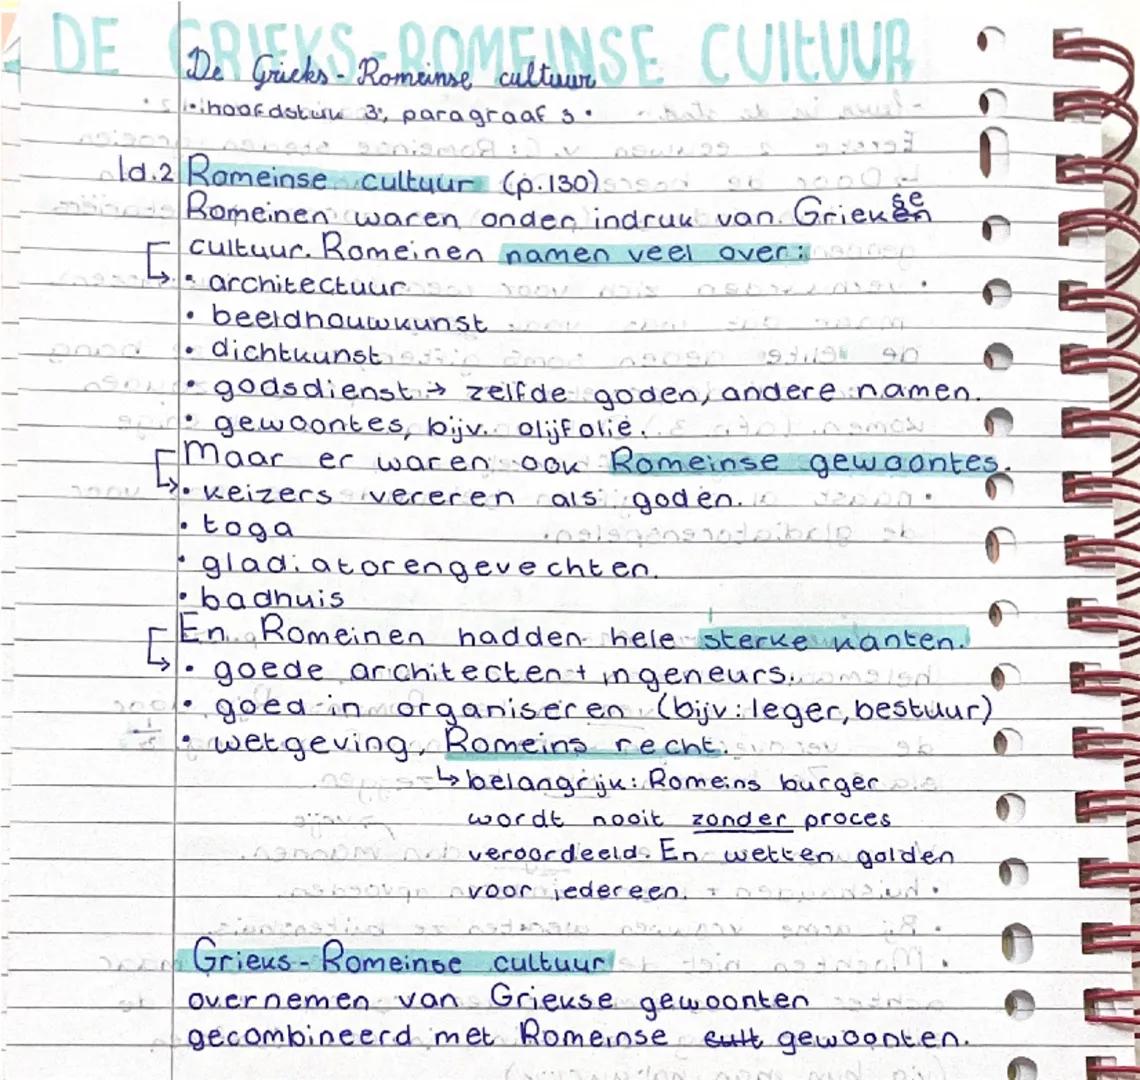 DE GRIEKS-ROMEINSE CULTUUR
De Grieks-Romeinse cultuur
• hoofdstuk 3, paragraaf 3 •
ld.2 Romeinse cultuur (p.130)
Romeinen waren onder indruk van Griekse
cultuur. Romeinen namen veel over:
• architectuur
• beeldhouwkunst
• dichtkunst
• godsdienst → zelfde goden, andere namen.
• gewoontes, bijv. olijfolie.
Maar er waren ook Romeinse gewoontes.
• keizers vereren als goden.
• toga
• gladiatorengevechten.
• badhuis
En Romeinen hadden hele sterke kanten.
• goede architecten + ingeneurs.
• goed in organiseren (bijv: leger, bestuur)
• wetgeving, Romeins recht:
↳ belangrijk: Romeins burger
wordt nooit zonder proces
veroordeeld. En wetten golden
voor iedereen.
Grieks-Romeinse cultuur
overnemen van Griekse gewoonten
gecombineerd met Romeinse cult gewoonten.